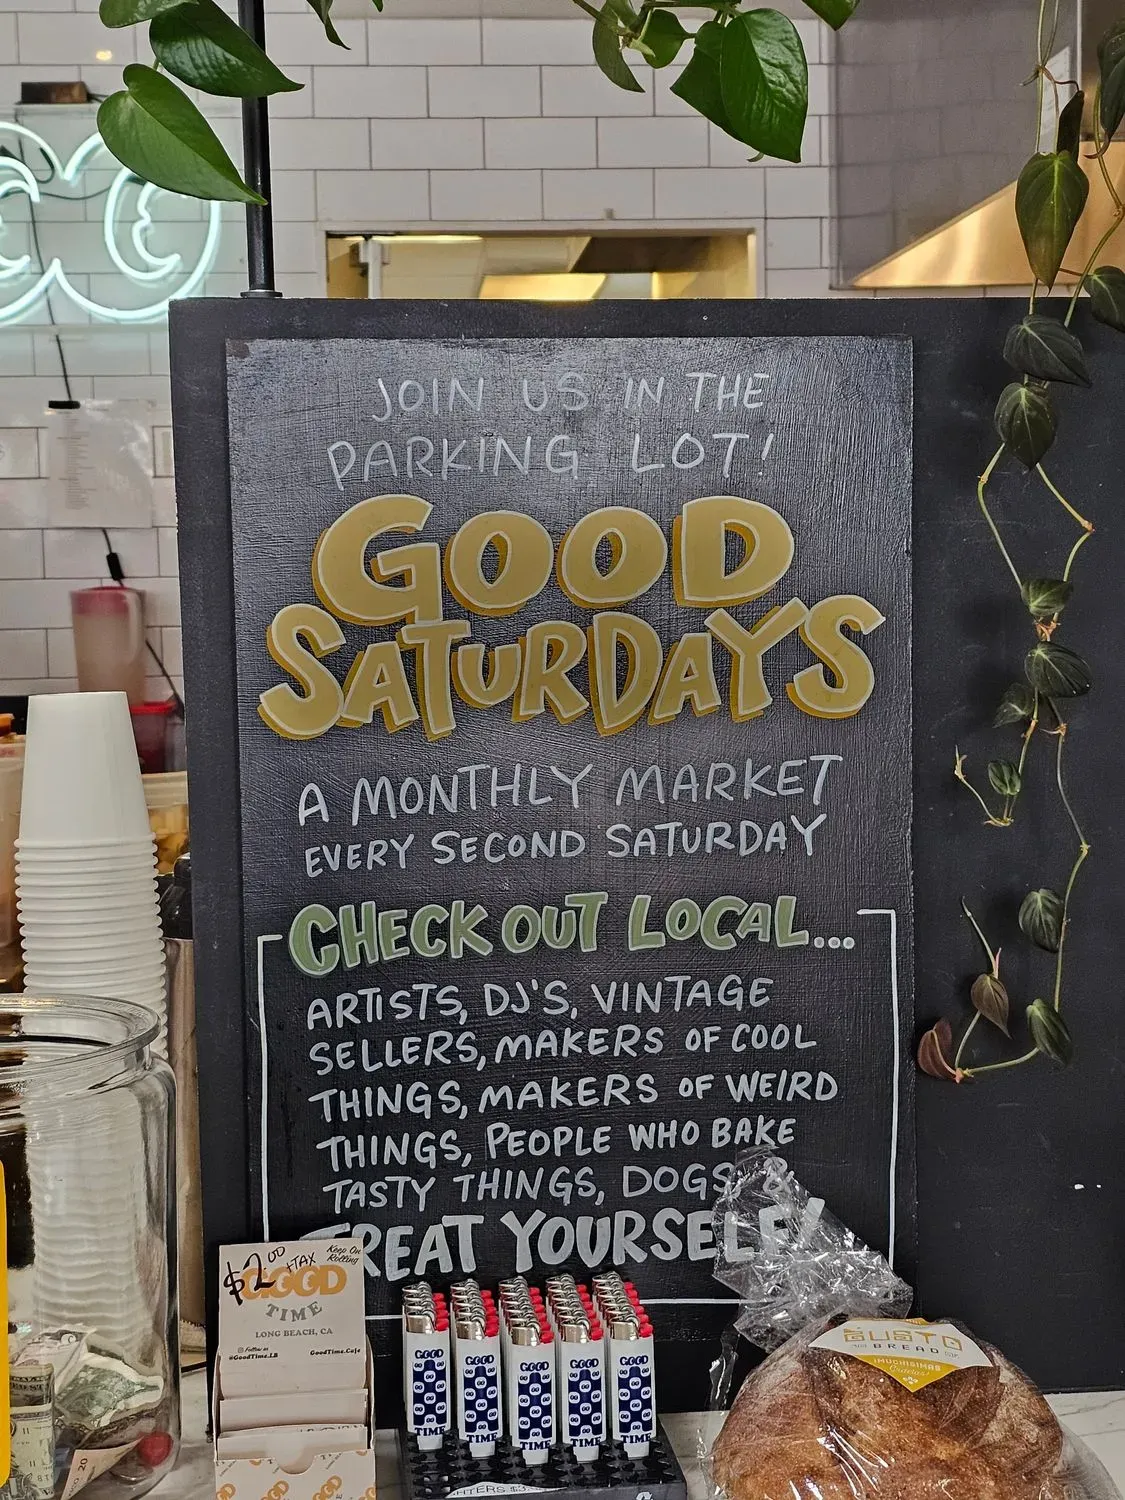 JOIN US IN THE
PARKING LOT!
GOOD
SATURDAYS
A MONTHLY MARKET
EVERY SECOND SATURDAY
CHECK OUT LOCAL...
ARTISTS, DJ'S, VINTAGE
SELLERS, MAKERS OF COOL
THINGS, MAKERS OF WEIRD
THINGS, PEOPLE WHO BAKE
TASTY THINGS, DOGS &
TREAT YOURSELF!
$2.00 +TAX
Keep On
Rolling
GOOD
TIME
LONG BEACH, CA
Follow us
@GoodTime.LB
GoodTime.Cafe
GOOD
TIME
GOOD
TIME
GOOD
TIME
GOOD
TIME
GOOD
TIME
GUSTO
BREAD
¡MUCHISIMAS
Gracias!
GOOD
20